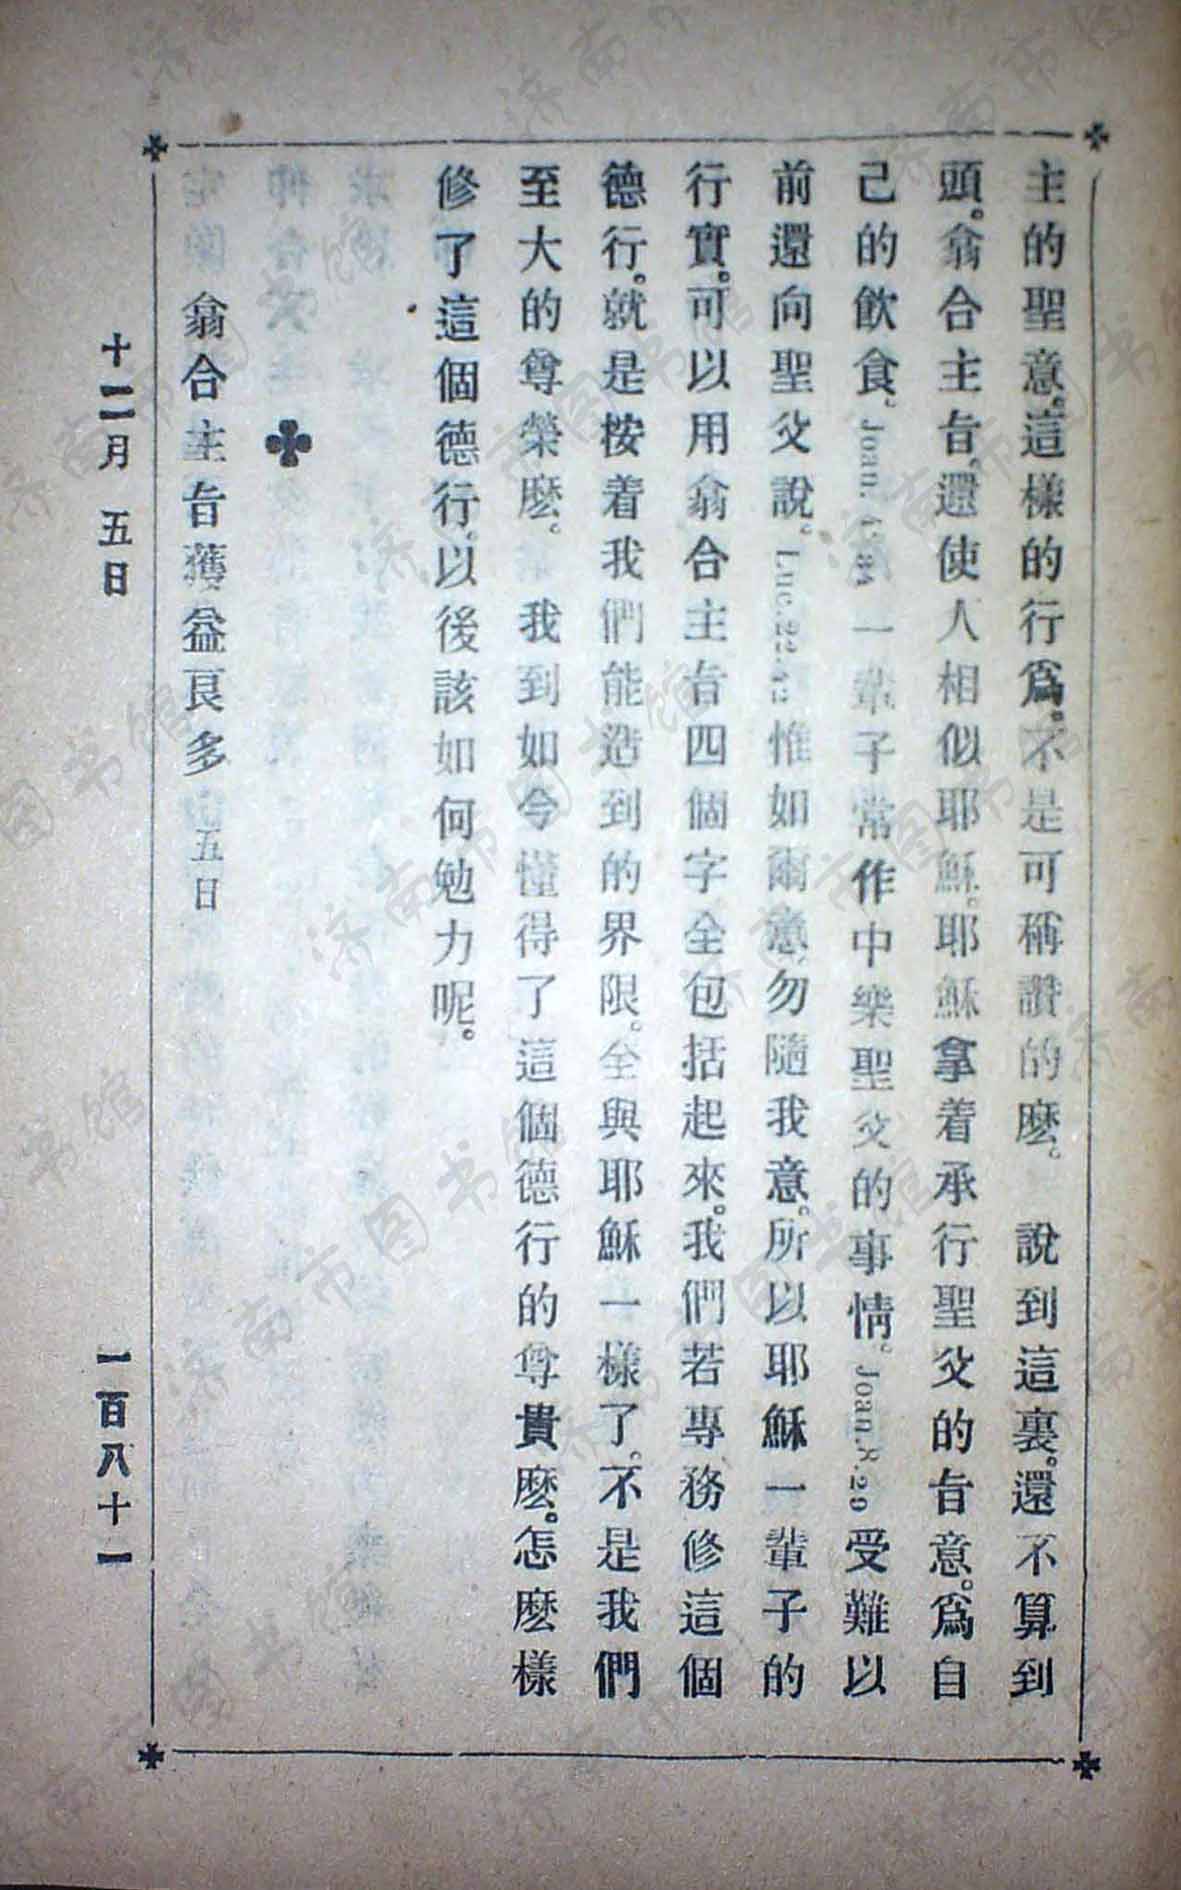 主的聖意。這樣的行爲。不是可稱讚的麽。 說到這裏。還不算到
頭。翕合主旨。還使人相似耶穌。耶穌拿着承行聖父的旨意。爲自
己的飲食。Joan. 4.34 一輩子常作中樂聖父的事情。Joan.8.29 受難以
前還向聖父說。Luc.22.42 惟如爾意。勿隨我意。所以耶穌一輩子的
行實。可以用翕合主旨四個字全包括起來。我們若專務修這個
德行。就是按着我們能造到的界限。全與耶穌一樣了。不是我們
至大的尊榮麽。 我到如今懂得了這個德行的尊貴麽。怎麽樣
修了這個德行。以後該如何勉力呢。
翕合主旨獲益良多 五日
十二月 五日 一百八十一
济南市图书馆